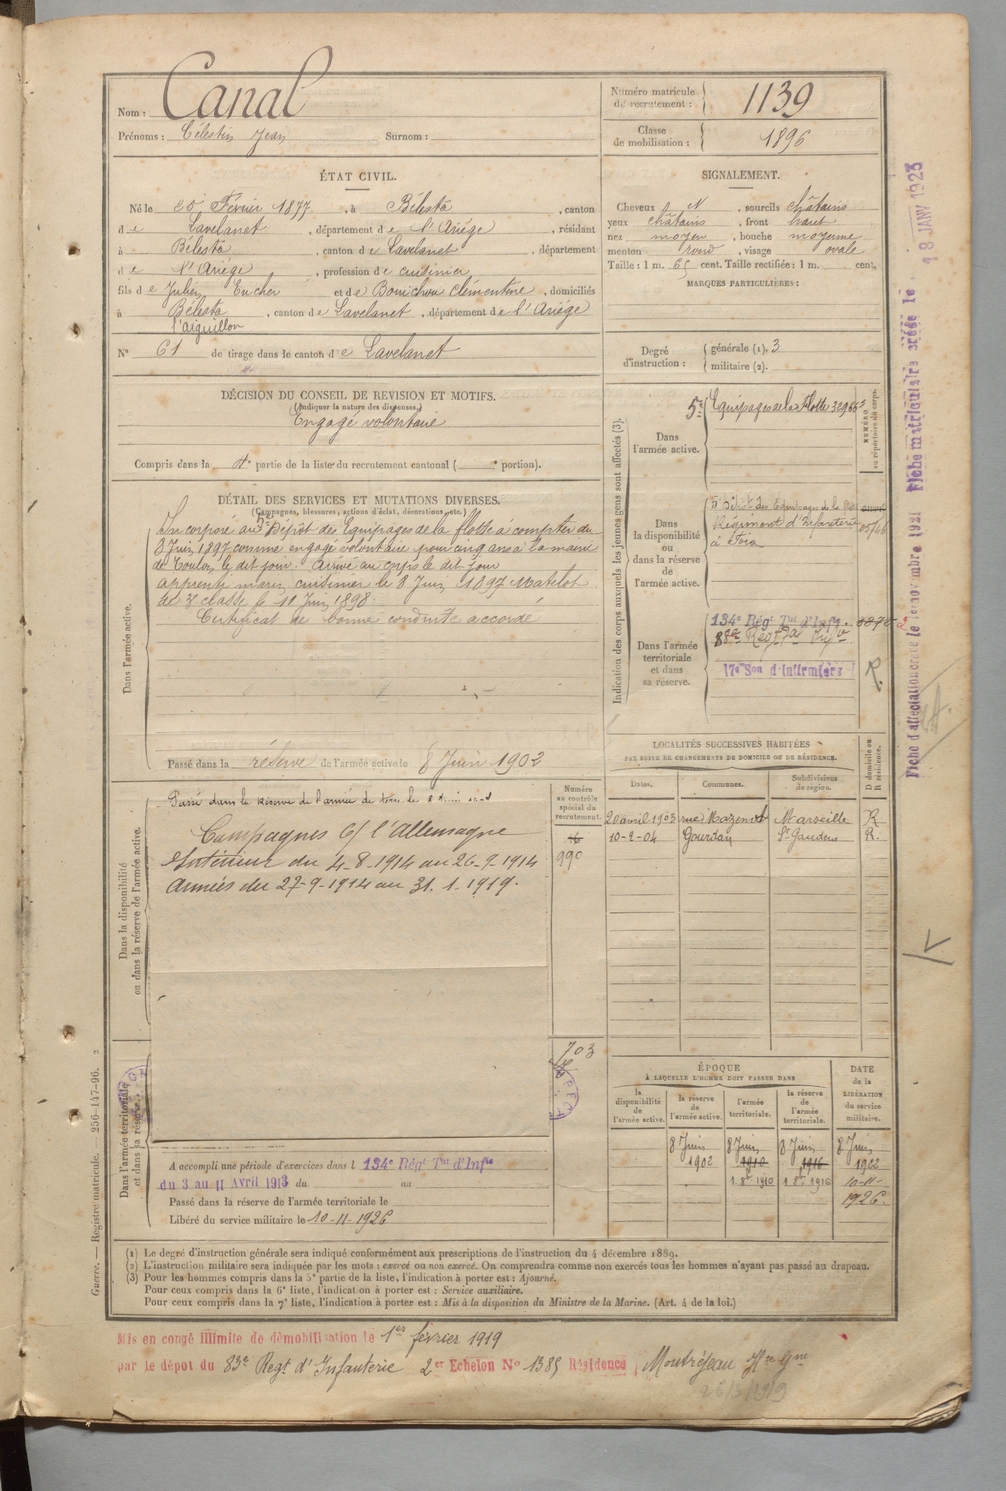 Nom : Canal
Prénoms : Célestin Jean Surnom :
Numéro matricule de recrutement : 1139
Classe de mobilisation : 1896
ÉTAT CIVIL.
Né le 20 Février 1877, à Bélesta, canton
de Lavelanet, département de l'Ariège, résidant
à Bélesta, canton de Lavelanet, département
de l'Ariège, profession de cuisinier
fils de Julien Eucher et de Bonichou Clémentine, domiciliés
à Bélesta, canton de Lavelanet, département de l'Ariège
l'aiguillon
N° 61 de tirage dans le canton de Lavelanet
SIGNALEMENT.
Cheveux N, sourcils châtains
yeux châtains, front haut
nez moyen, bouche moyenne
menton rond, visage ovale
Taille : 1 m. 65 cent. Taille rectifiée : 1 m. cent.
MARQUES PARTICULIÈRES :
Degré d'instruction : générale (1). 3
militaire (2).
DÉCISION DU CONSEIL DE REVISION ET MOTIFS.
(Indiquer la nature des dispenses.)
Engagé volontaire
Compris dans la partie de la liste du recrutement cantonal ( portion).
DÉTAIL DES SERVICES ET MUTATIONS DIVERSES.
(Campagnes, blessures, actions d'éclat, décorations, etc.)
Dans l'armée active.
Incorporé au 5e Dépôt des Equipages de la flotte à compter du
8 Juin 1897 comme engagé volontaire pour cinq ans à la mairie
de Toulon le dit jour. Arrivé au corps le dit jour
apprenti marin cuisinier le 8 Juin 1897 Matelot
de 3e classe le 11 Juin 1898
Certificat de bonne conduite accordé
Passé dans la réserve de l'armée active le 8 Juin 1902
Indication des corps auxquels les jeunes gens sont affectés (3).
NUMÉRO au répertoire du corps.
Dans l'armée active.
5e Equipages de la Flotte
Dans la disponibilité ou dans la réserve de l'armée active.
5e Dépôt des Equipages de la
Régiment d'Infanterie
à Foix
Dans l'armée territoriale et dans sa réserve.
134e Régt Tal d'Infie
17e Son d'Infirmiers
R.
LOCALITÉS SUCCESSIVES HABITÉES
PAR SUITE DE CHANGEMENTS DE DOMICILE OU DE RÉSIDENCE.
Dates. Communes. Subdivisions de région. D domicile ou R résidence.
20 avril 1903 rue Mazenod Marseille R
10-2-04 Gourdan St Gaudens R.
Dans la disponibilité ou dans la réserve de l'armée active.
Numéro au contrôle spécial du recrutement.
Passé dans la Réserve de l'armée de terre le 8
Campagnes C/ l'Allemagne
Intérieur du 4-8-1914 au 26-9-1914
Armées du 27-9-1914 au 31.1.1919.
990
703
Dans l'armée territoriale et dans sa réserve.
A accompli une période d'exercices dans l 134e Régt Tal d'Infie
du 3 au 11 Avril 1913 du au
Passé dans la réserve de l'armée territoriale le
Libéré du service militaire le 10-11-1926
ÉPOQUE
À LAQUELLE L'HOMME DOIT PASSER DANS
la disponibilité de l'armée active. la réserve de l'armée active. l'armée territoriale. la réserve de l'armée territoriale.
DATE de la LIBÉRATION du service militaire.
8 Juin 8 Juin 8 Juin 8 Juin
1902 1910 1916 1922
1 8bre 1910 1 8bre 1916 10-11-
1926.
(1) Le degré d'instruction générale sera indiqué conformément aux prescriptions de l'instruction du 4 décembre 1889.
(2) L'instruction militaire sera indiquée par les mots : exercé ou non exercé. On comprendra comme non exercés tous les hommes n'ayant pas passé au drapeau.
(3) Pour les hommes compris dans la 5e partie de la liste, l'indication à porter est : Ajourné.
Pour ceux compris dans la 6e liste, l'indication à porter est : Service auxiliaire.
Pour ceux compris dans la 7e liste, l'indication à porter est : Mis à la disposition du Ministre de la Marine. (Art. 4 de la loi.)
Guerre. — Registre matricule. 256-147-96.
Mis en congé illimité de démobilisation le 1er février 1919
par le dépot du 83e Regt d'Infanterie 2er Echelon N° 1385 Résidence Montréjeau Hte Gne
26/3/1919
Fiche d'affectation créée le 1er novembre 1921 Fiche matriculaire créée le 18 JANV 1923